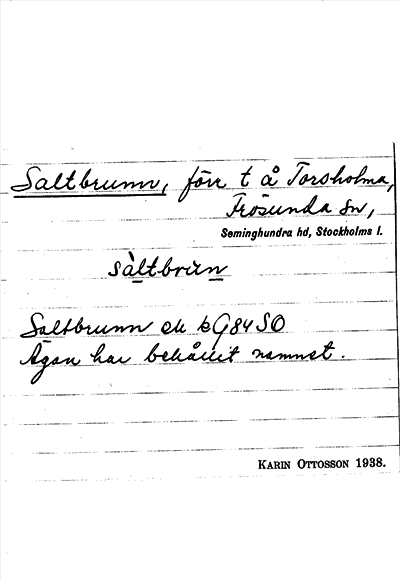 Saltbrunn, förr t å Torsholma,
Frösunda sn,
Seminghundra hd, Stockholms l.
sàltbrun
Saltbrunn ek bG84SO
Ägan har behållit namnet.
KARIN OTTOSSON 1938.